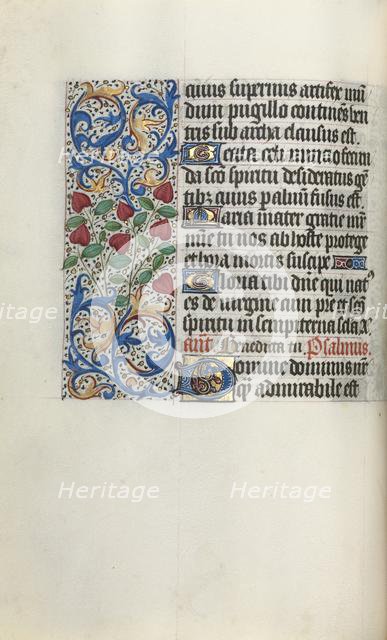 cuius supernus artifex mū
dum pugillo continēs ven
tris sub archa clausus est.
Beata celi nuncio fecun
da sc̄o spiritu desideratus gē
tibꝫ cuius p̲ aluum fusus est.
Maria mater gratie mr̄
mīe tu nos ab hoste protege
et hora mortis suscipe
Gloria tibi dn̄e qui natꝰ
es de virgine cum pr̄e et sc̄o
spiritu in sempiterna secla. A.
ant. Benedicta tu Psalmus.
Domine dominus nr̄
q̄ꝫ admirabile est
Heritage Heritage
Heritage Heritage
Heritage Heritage